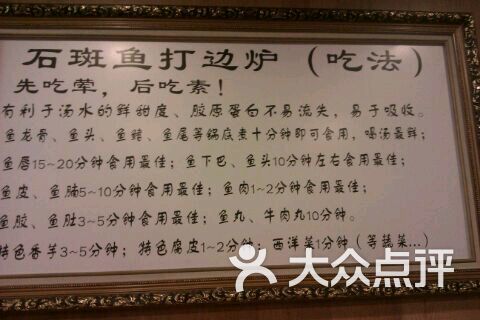 石斑鱼打边炉（吃法）
先吃荤，后吃素！
有利于汤水的鲜甜度、胶原蛋白不易流失，易于吸收。
鱼龙骨、鱼头、鱼鳍、鱼尾等锅底煮十分钟即可食用，喝汤最鲜；
鱼唇15~20分钟食用最佳；鱼下巴、鱼头10分钟左右食用最佳；
鱼皮、鱼腩5~10分钟食用最佳；鱼肉1~2分钟食用最佳；
鱼胶、鱼肚3~5分钟食用最佳；鱼丸、牛肉丸10分钟。
特色香芋3~5分钟；特色腐皮1~2分钟；西洋菜1分钟（等蔬菜...）
大众点评